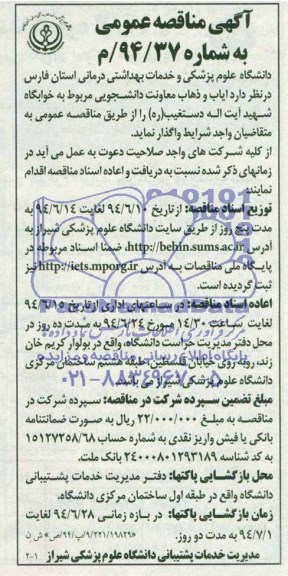 آگهی مناقصه عمومی
به شماره ۹۴/۳۷/م
دانشگاه علوم پزشکی و خدمات بهداشتی درمانی استان فارس
در نظر دارد ایاب و ذهاب معاونت دانشجویی مربوط به خوابگاه
شهید آیت اله دستغیب(ره) را از طریق مناقصه عمومی به
متقاضیان واجد شرایط واگذار نماید.
از کلیه شرکت های واجد صلاحیت دعوت به عمل می آید در
زمانهای ذکر شده نسبت به دریافت و اعاده اسناد مناقصه اقدام
نمایند
توزیع اسناد مناقصه: از تاریخ ۹۴/۶/۱۰ لغایت ۹۴/۶/۱۴ به
مدت پنج روز از طریق سایت دانشگاه علوم پزشکی شیراز به
آدرس http://behin.sums.ac.ir، ضمنا اسناد مربوطه در
پایگاه ملی مناقصات به آدرس http://iets.mporg.ir نیز
ثبت گردیده است.
اعاده اسناد مناقصه: در ساعتهای اداری از تاریخ ۹۴/۶/۱۵
لغایت ساعت ۱۴/۳۰ مورخ ۹۴/۶/۲۴ به مدت ده روز در
محل دفتر مدیریت حراست دانشگاه، واقع در بولوار کریم خان
زند، روبه روی خیابان فلسطین، طبقه هشتم ساختمان مرکزی
دانشگاه علوم پزشکی شیراز می باشد.
پایگاه اطلاع رسانی مناقصه و مزایده
۰۲۱-۸۸۳۴۹۶۷۰
مبلغ تضمین سپرده شرکت در مناقصه: سپرده شرکت در
مناقصه به مبلغ ۲۲/۰۰۰/۰۰۰ ریال به صورت ضمانتنامه
بانکی یا فیش واریز نقدی به شماره حساب ۱۵۱۲۷۲۵۸/۶۸
به کد شناسه ۲۴۰۰۰۸۰۱۲۹۳۱۸۹ بانک ملت.
محل بازگشایی پاکتها: دفتر مدیریت خدمات پشتیبانی
دانشگاه واقع در طبقه اول ساختمان مرکزی دانشگاه.
زمان بازگشایی پاکتها: در بازه زمانی ۹۴/۶/۲۸ لغایت
۹۴/۷/۱ به مدت دو روز.
مدیریت خدمات پشتیبانی دانشگاه علوم پزشکی شیراز ۲-۱